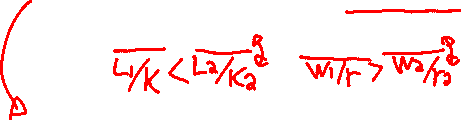 L1/K < L2/K2 W1/r > W2/r2